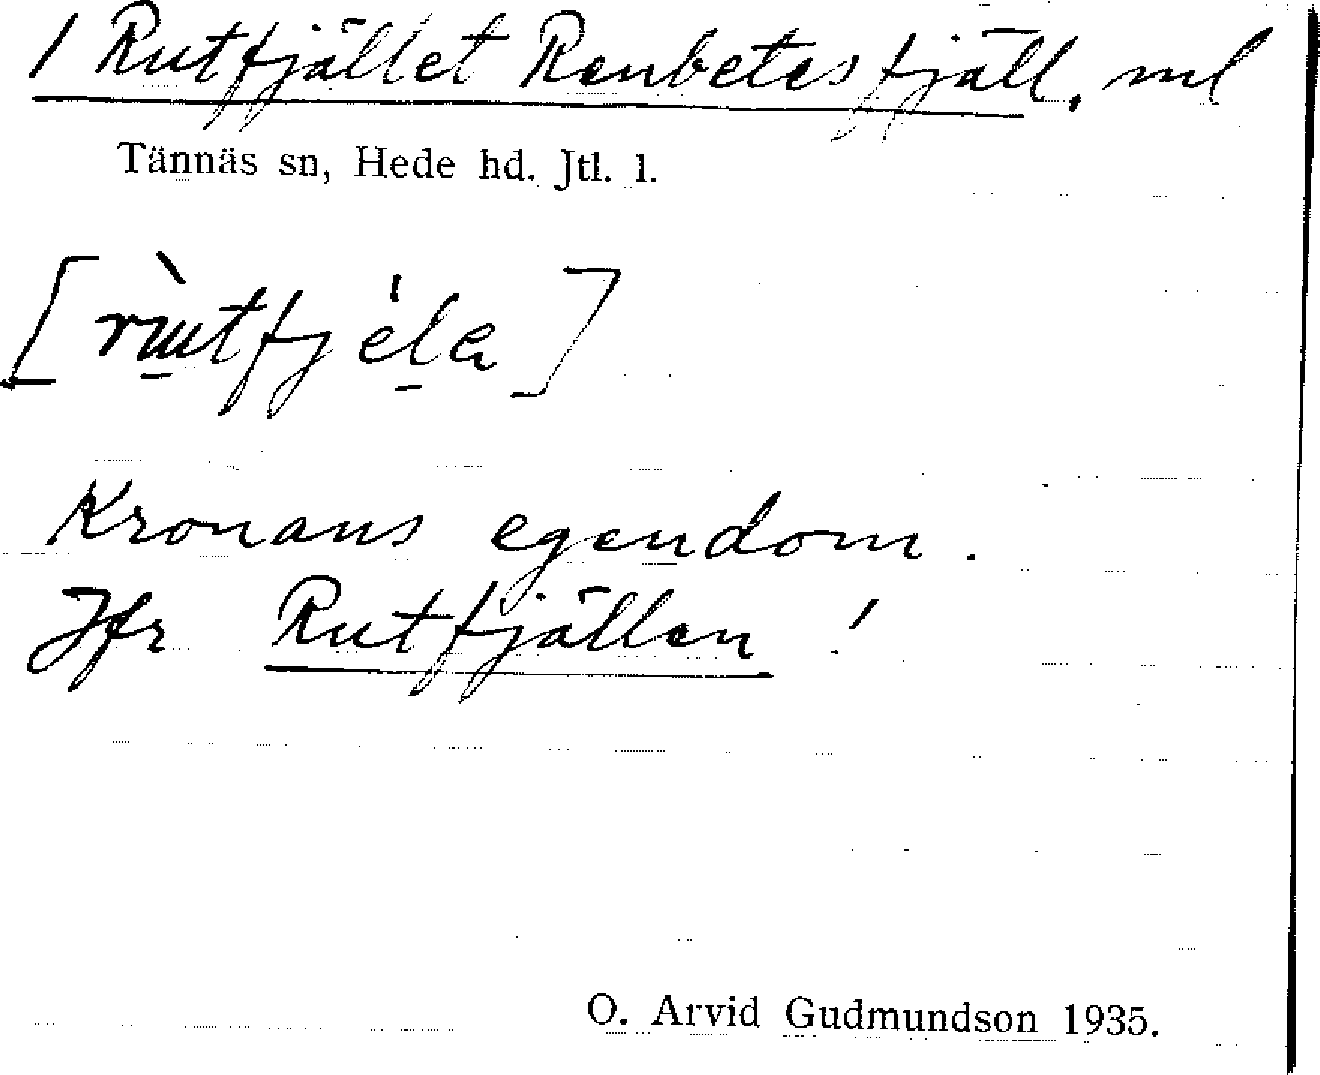 / Rutfjället Renbetesfjäll, nl
Tännäs sn, Hede hd. Jtl. l.
[rɯ̀tfjéla]
Kronans egendom.
Jfr Rutfjällen!
O. Arvid Gudmundson 1935.